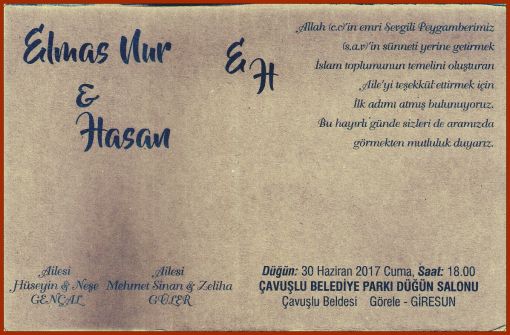 Elmas Nur
&
Hasan
E
&
H
Allah (c.c)'in emri Sevgili Peygamberimiz
(s.a.v)'in sünneti yerine getirmek
İslam toplumunun temelini oluşturan
Aile'yi teşekkül ettirmek için
İlk adımı atmış bulunuyoruz.
Bu hayırlı günde sizleri de aramızda
görmekten mutluluk duyarız.
Ailesi
Hüseyin & Neşe
GENÇAL
Ailesi
Mehmet Sinan & Zeliha
GÜLER
Düğün: 30 Haziran 2017 Cuma, Saat: 18.00
ÇAVUŞLU BELEDİYE PARKI DÜĞÜN SALONU
Çavuşlu Beldesi Görele - GİRESUN